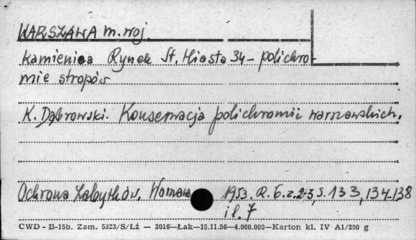 WARSZAWA m. woj.
Kamienica Rynek St. Miasta 34 - polichro-
mie stropów
K. Dąbrowski. Konserwacja polichromii warszawskich,
Ochrona Zabytków, 1953. R. 6. z. 2-3, s. 133, 134-138
il. 7
CWD - B-15b. Zam. 5823/S/Łź — 3016—Łak—15.11.56—4.000.000—Karton kl. IV A1/200 g